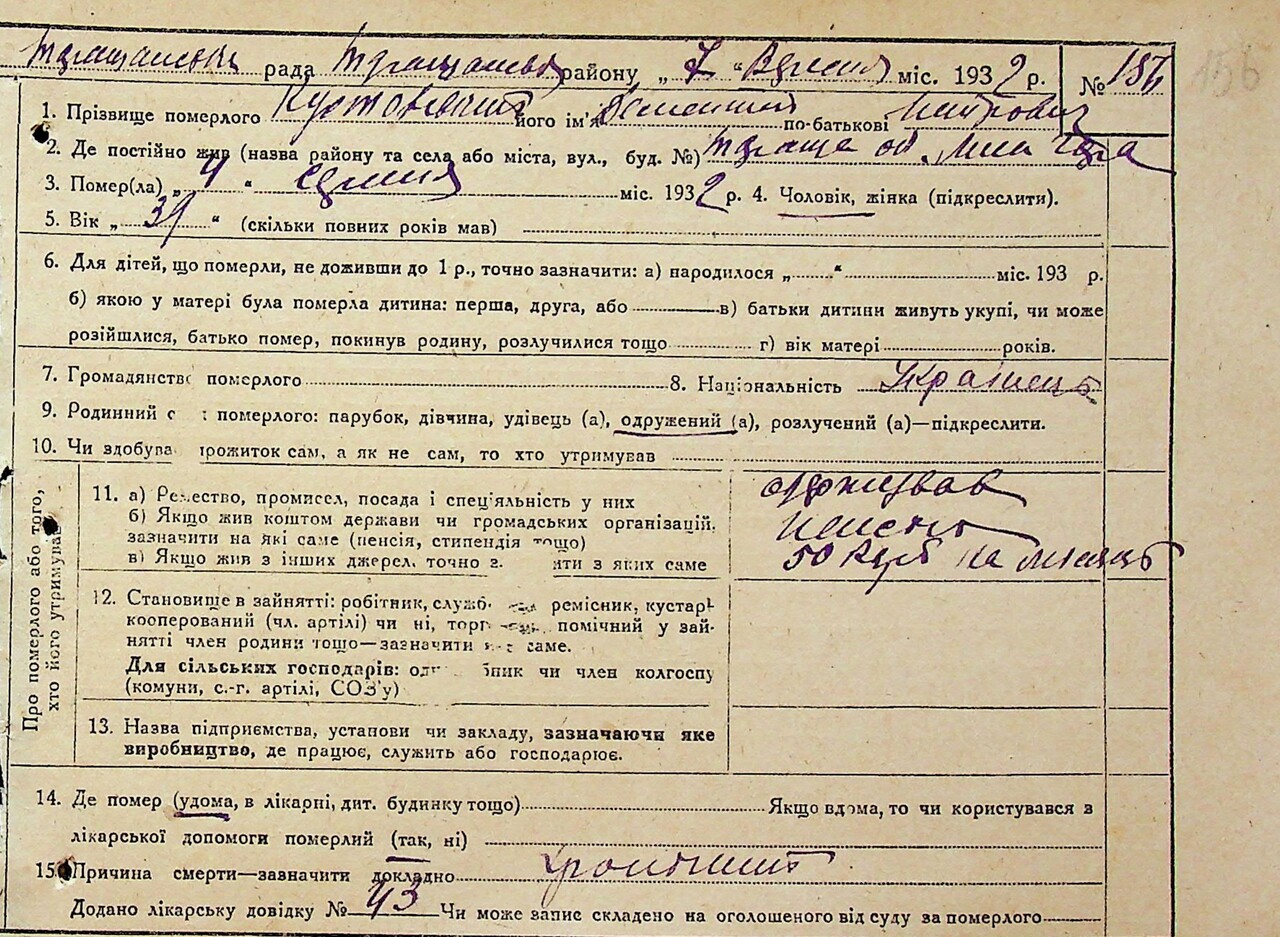 рада району „ 7 “ міс. 1932 р. № 156 156
1. Прізвище померлого його ім'я по-батькові
2. Де постійно жив (назва району та села або міста, вул., буд. №)
3. Помер(ла) „ 4 “ серпня міс. 1932 р. 4. Чоловік, жінка (підкреслити).
5. Вік „ “ (скільки повних років мав)
6. Для дітей, що померли, не доживши до 1 р., точно зазначити: а) народилося „ “ міс. 193 р.
б) якою у матері була померла дитина: перша, друга, або в) батьки дитини живуть укупі, чи може
розійшлися, батько помер, покинув родину, розлучилися тощо г) вік матері років.
7. Громадянств померлого 8. Національність Українець
9. Родинний с померлого: парубок, дівчина, удівець (а), одружений (а), розлучений (а)—підкреслити.
10. Чи здобува прожиток сам, а як не сам, то хто утримував
Про померлого або того, хто його утримував
11. а) Ремество, промисел, посада і спец'яльність у них
б) Якщо жив коштом держави чи громадських організацій.
зазначити на які саме (пенсія, стипендія тощо)
в) Якщо жив з інших джерел, точно з яти з яких саме
одержував
пенсію
50 карб на місяць
12. Становище в зайнятті: робітник, служб ремісник, кустар
кооперований (чл. артілі) чи ні, торг помічний у зай-
нятті член родини тощо—зазначити саме.
Для сільських господарів: од ник чи член колгоспу
(комуни, с.-г. артілі, СОЗ'у)
13. Назва підприємства, установи чи закладу, зазначаючи яке
виробництво, де працює, служить або господарює.
14. Де помер (удома, в лікарні, дит. будинку тощо) Якщо вдома, то чи користувався з
лікарської допомоги померлий (так, ні)
15. Причина смерти—зазначити докладно
Додано лікарську довідку № 43 Чи може запис складено на оголошеного від суду за померлого